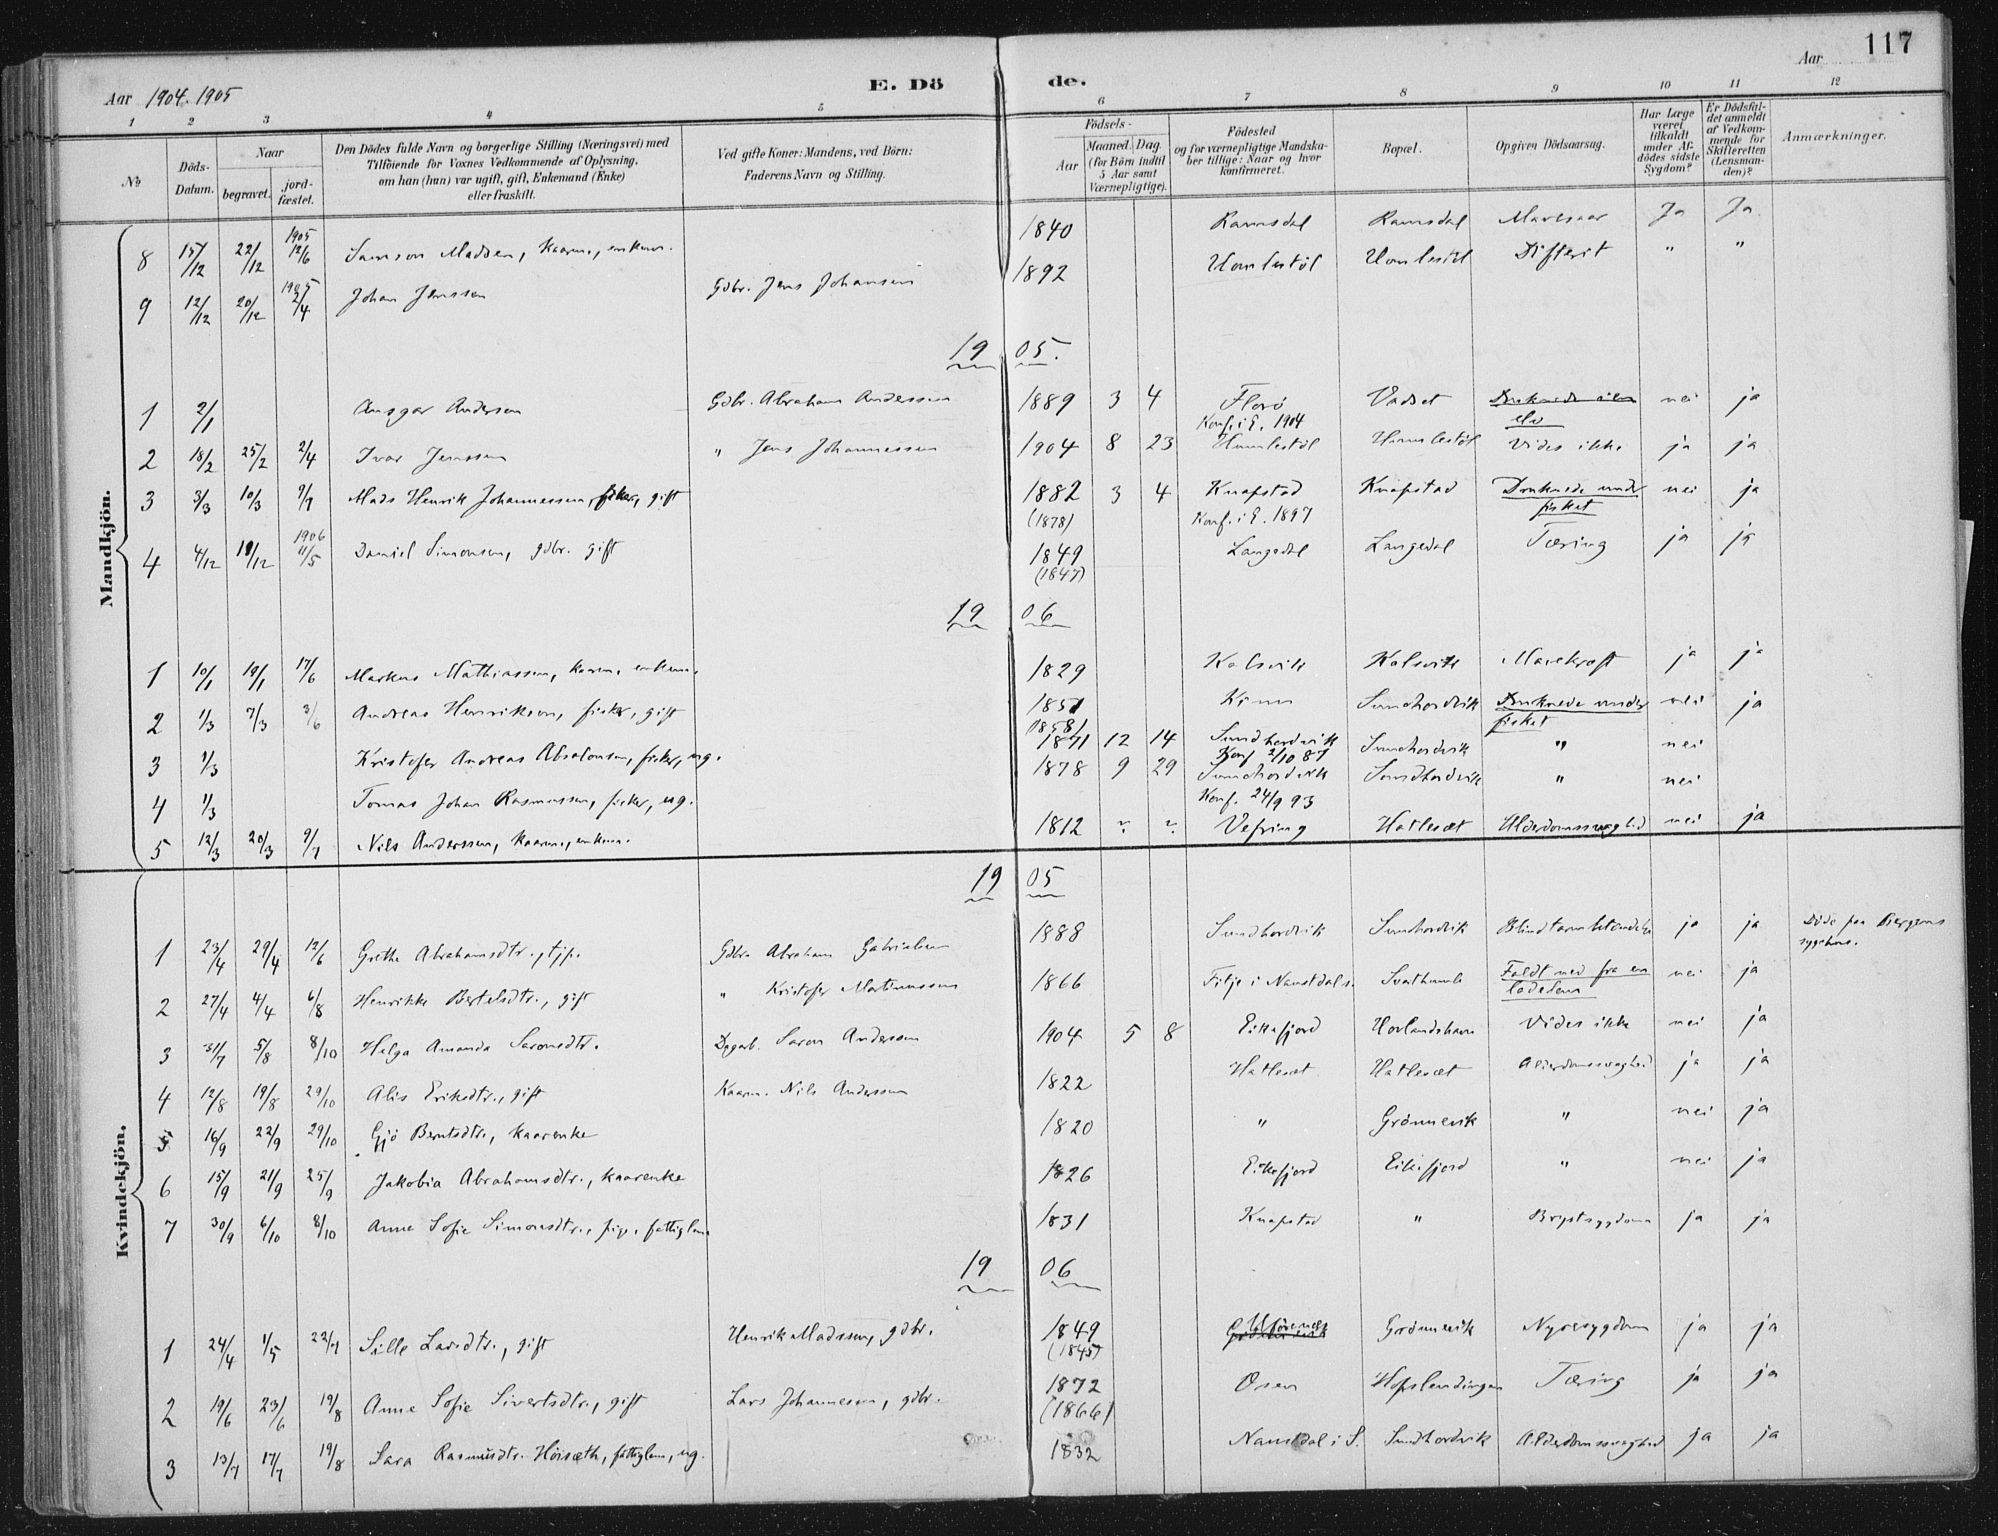 117
Aar 1904. 1905
E. Dö de.
Aar
1 2 3 4 5 6 7 8 9 10 11 12
No
Döds-Datum.
Naar
begravet.
jord-fæstet.
Den Dödes fulde Navn og borgerlige Stilling (Næringsvei) med
Tilföiende for Voxnes Vedkommende af Oplysning,
om han (hun) var ugift, gift, Enkemand (Enke)
eller fraskilt.
Ved gifte Koner: Mandens, ved Börn:
Faderens Navn og Stilling.
Födsels-
Aar
Maaned. Dag.
(for Börn indtil
5 Aar samt
Værnepligtige).
Födested
og for værnepligtige Mandska-
ber tillige: Naar og hvor
konfirmeret.
Bopæl.
Opgiven Dödsaarsag.
Har Læge
været
tilkaldt
under Af-
dödes sidste
Sygdom?
Er Dödsfal-
det anmeldt
af Vedkom-
mende for
Skifteretten
(Lensman-
den)?
Anmærkninger.
Mandkjön.
8 15/12 22/12 1905 12/6 Samson Madsen, kaarm., enkem. 1840 Ramsdal Ramsdal Ja Ja
9 12/12 20/12 1905 2/4 Johan Jenssen Gdbr. Jens Johansen 1892 Humlestöl Difterit " "
1905.
1 2/1 Ansgar Andersen Gdbr. Abraham Anderssen 1889 3 4 Florö Konf. i E. 1904 Vadset elv nei ja
2 18/2 25/2 2/4 Ivar Jenssen " Jens Johannessen 1904 8 23 Humlestöl Humlestöl Vides ikke ja ja
3 3/3 10/3 9/7 Mads Henrik Johannessen, fisker, gift 1882 (1878) 3 4 Knapstad Konf. i E. 1897 Knapstad Druknede under fisket nei ja
4 4/12 11/12 1906 11/5 Daniel Simonsen, gdbr. gift 1849 (1847) Langedal Langedal Tæring ja ja
1906
1 10/1 19/1 17/6 Markus Mathiassen, kaarm. enkem. 1829 Kalsvik Kalsvik ja ja
2 1/3 7/3 3/6 Andreas Henriksen, fisker, gift 1851 1858 Kinn Sundhordvik Druknede under fisket nei ja
3 1/3 Kristofer Andreas Absalonsen, fisker, ug. 1871 12 14 Sundhordvik Konf 2/10 87 Sundhordvik " nei
4 1/3 Tomas Johan Rasmussen, fisker, ug. 1878 9 29 Sundhordvik Konf. 24/9 93 Sundhordvik " nei
5 12/3 20/3 9/7 Nils Anderssen, kaarm., enkem. 1812 ? ? Vefring Hatlesæt Alderdomssvaghed nei ja
Kvindekjön.
1905
1 23/4 29/4 12/6 Grethe Abrahamsdtr., tjp. Gdbr. Abraham Gabrielsen 1888 Sundhordvik Sundhordvik Blindtarmbetændelse ja ja Döde paa Bergens sygehus.
2 27/4 4/4 6/8 Henrikke Bertelsdtr., gift " Kristofer Martinussen 1866 Fitje i Namstdal Svarthumle Faldt ned fra en nei ja
3 31/7 5/8 8/10 Helga Amanda Saronsdtr. Dagarb. Saron Andersson 1904 5 8 Eikefjord Hovlandshavn Vides ikke nei ja
4 12/8 19/8 29/10 Alis Eriksdtr., gift Kaarm. Nils Anderssen 1822 Hatlesæt Hatlesæt Alderdomssvaghed ja ja
5 16/9 22/9 29/10 Gjö Berntsdtr., kaarenke 1820 " Grönnevik " nei ja
6 15/9 21/9 25/9 Jakobia Abrahamsdtr., kaarenke 1826 Eikefjord Eikefjord " nei ja
7 30/9 6/10 8/10 Anne Sofie Simonsdtr., pige, fattiglem. 1831 Knapstad " Brystsygdom ja ja
1906
1 24/4 1/5 22/7 Sille Larsdtr., gift Henrik Madssen, gdbr. 1849 (1845) Grönnevik Nyresygdom ja ja
2 19/6 23/6 19/8 Anne Sofie Sivertsdtr., gift Lars Johannesen, gdbr. 1872 (1866) Osen Hopslendingen Tæring ja ja
3 13/7 17/7 19/8 Sara Rasmusdtr. Höisæth, fattiglem, ug. 1832 Namstdal i S. Sundhordvik Alderdomssvaghed ja ja